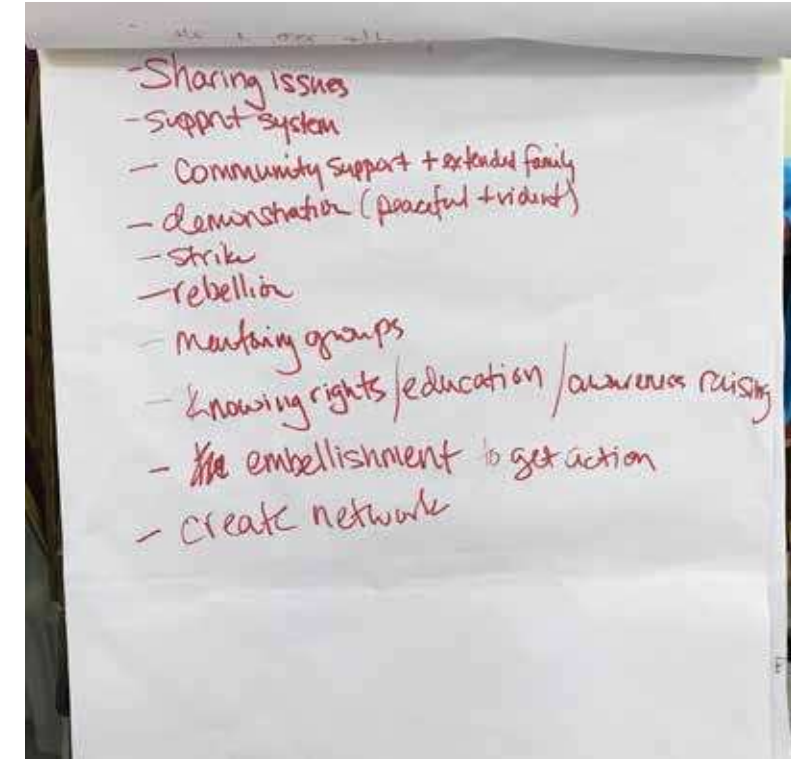 - Sharing issues
- support system
- Community support + extended family
- demonstration (peaceful + violent)
- strike
- rebellion
- mentoring groups
- knowing rights/education/awareness raising
- embellishment to get action
- create network